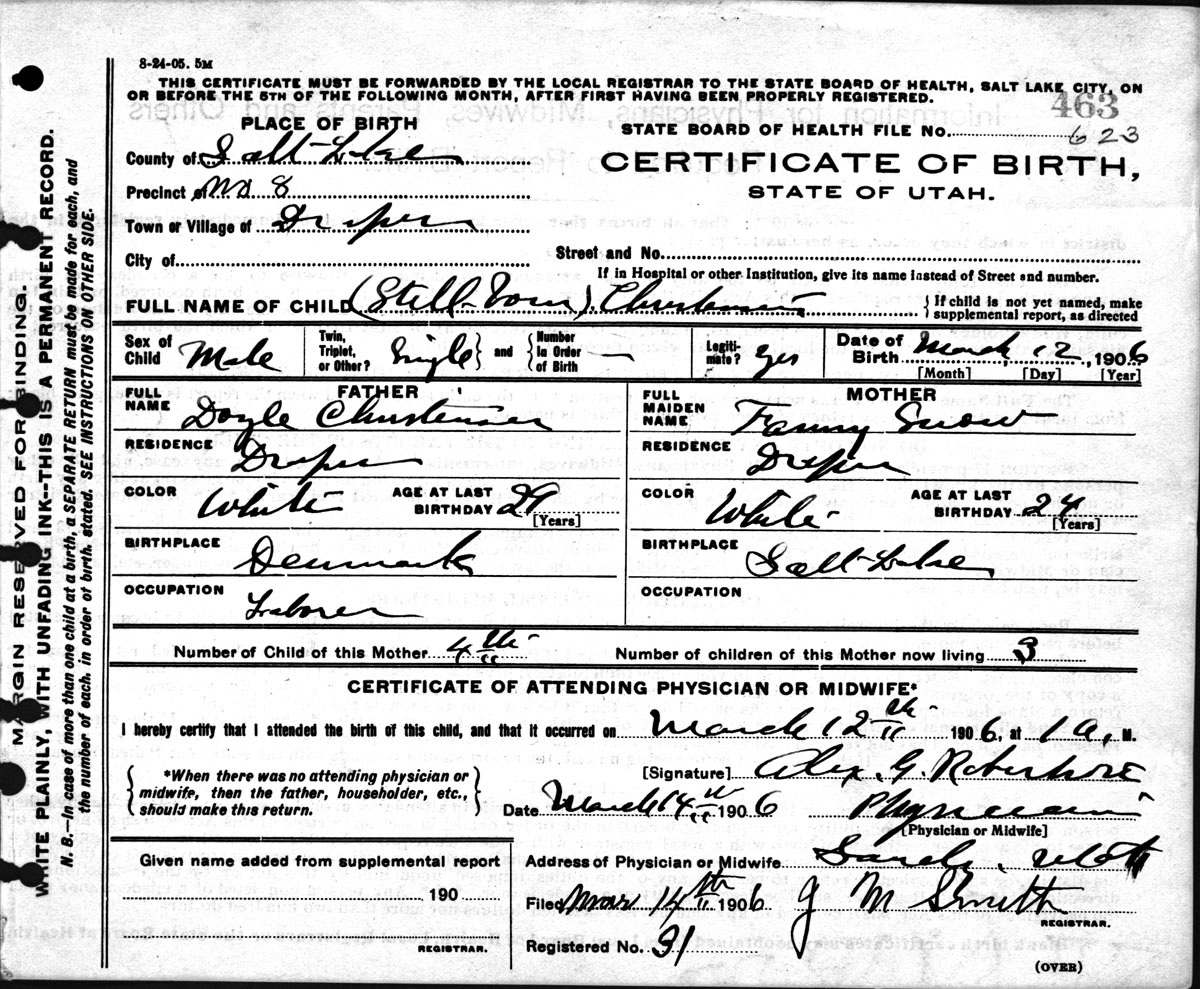 8-24-05. 5M
THIS CERTIFICATE MUST BE FORWARDED BY THE LOCAL REGISTRAR TO THE STATE BOARD OF HEALTH, SALT LAKE CITY, ON
OR BEFORE THE 5TH OF THE FOLLOWING MONTH, AFTER FIRST HAVING BEEN PROPERLY REGISTERED.
463
PLACE OF BIRTH
STATE BOARD OF HEALTH FILE No. 623
County of Salt Lake
CERTIFICATE OF BIRTH,
Precinct of No 8
STATE OF UTAH.
Town or Village of Draper
City of
Street and No.
If in Hospital or other Institution, give its name instead of Street and number.
FULL NAME OF CHILD (Still-born) Christensen
{If child is not yet named, make
supplemental report, as directed
Sex of Child Male
Twin, Triplet, or Other? Single} and {Number In Order of Birth —
Legitimate? yes
Date of Birth March 12, 1906
[Month] [Day] [Year]
FATHER
FULL NAME Doyle Christensen
RESIDENCE Draper
COLOR White
AGE AT LAST BIRTHDAY 29 [Years]
BIRTHPLACE Denmark
OCCUPATION Laborer
MOTHER
FULL MAIDEN NAME Fanny Snow
RESIDENCE Draper
COLOR White
AGE AT LAST BIRTHDAY 24 [Years]
BIRTHPLACE Salt Lake
OCCUPATION
Number of Child of this Mother 4th
Number of children of this Mother now living 3
CERTIFICATE OF ATTENDING PHYSICIAN OR MIDWIFE*
I hereby certify that I attended the birth of this child, and that it occurred on March 12th 1906, at 1 a, M.
{*When there was no attending physician or
midwife, then the father, householder, etc.,
should make this return.}
[Signature] Alex. G. Robertson
Date March 14th 1906 Physician
[Physician or Midwife]
Given name added from supplemental report
190
REGISTRAR.
Address of Physician or Midwife Sandy Utah
Filed Mar 14th 1906 J M Smith
REGISTRAR.
Registered No. 31
(OVER)
MARGIN RESERVED FOR BINDING.
WRITE PLAINLY, WITH UNFADING INK--THIS IS A PERMANENT RECORD.
N. B.—In case of more than one child at a birth, a SEPARATE RETURN must be made for each, and
the number of each, in order of birth, stated. SEE INSTRUCTIONS ON OTHER SIDE.